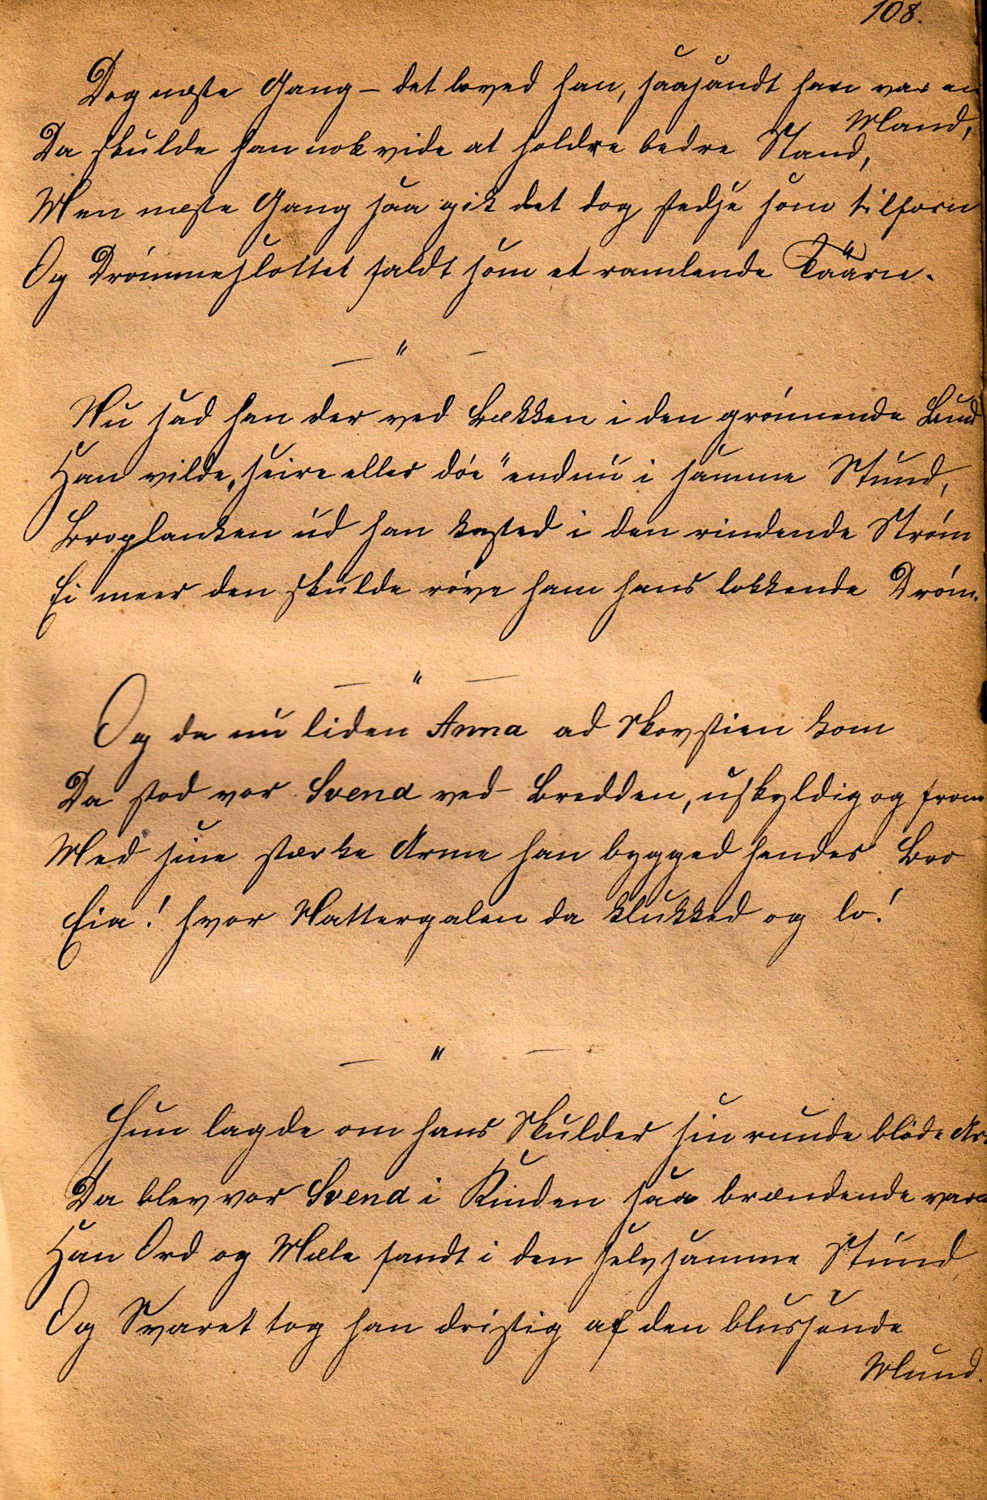 108.
Dog næste Gang – det loved han, saasandt han var en
Mand,
Da skulde han nok vide at holdre bedre Stand,
Men næste Gang saa gik det dog stedse som tilforn
Og Drømmeslottet faldt som et ramlende Taarn.
— " —
Nu sad han der ved Bækken i den grønnende Lund
Han vilde „seire eller döe" endnu i samme Stund,
Broplanken ud han kasted i den rindende Strøm
Ei meer den skulde røve ham hans lokkende Drøm.
— " —
Og da nu liden Anna ad Skovstien kom
Da stod vor Svend ved Bredden, uskyldig og from
Med sine stærke Arme han bygged hendes Bro
Eia! hvor Nattergalen da klukked og lo!
— " —
Hun lagde om hans Skulder sin runde bløde Ar
Da blev vor Svend i Kinden saa brændende varm
Han Ord og Mæle fandt i den selvsamme Stund,
Og Svaret tog han dristig af den blussende
Mund.